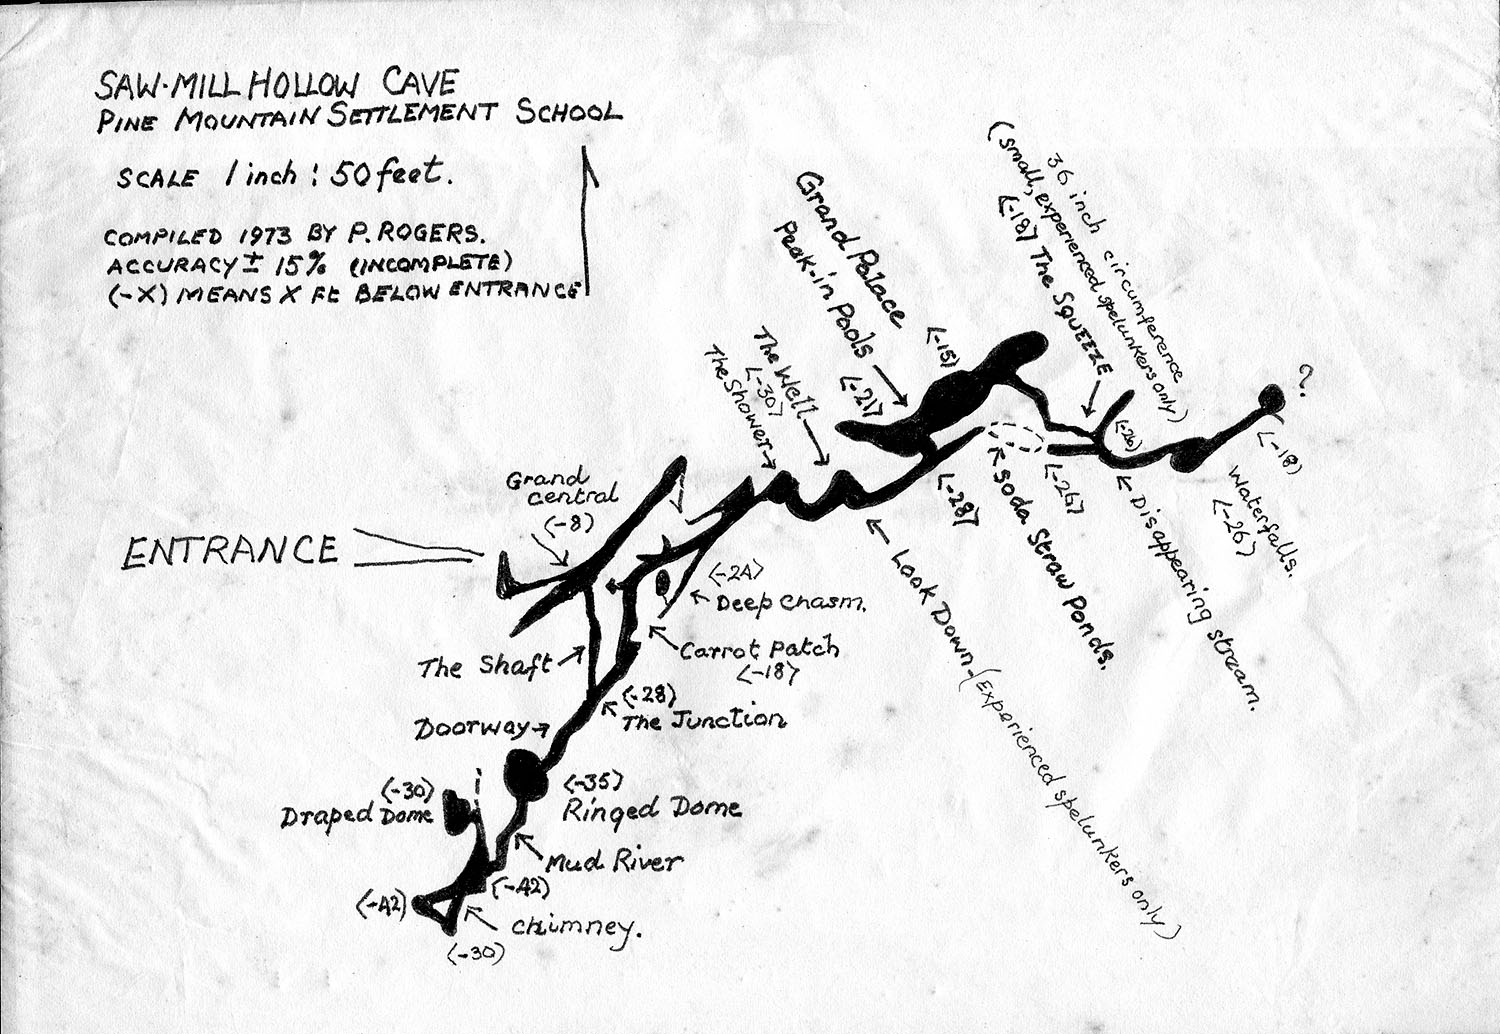 SAW-MILL HOLLOW CAVE
PINE MOUNTAIN SETTLEMENT SCHOOL
SCALE 1 inch : 50 feet.
COMPILED 1973 BY P. ROGERS.
ACCURACY ± 15% (INCOMPLETE)
(-X) MEANS X Ft BELOW ENTRANCE
36 inch circumference
(small, experienced spelunkers only)
(-18) The SQUEEZE
Grand Palace
(-15)
Peek-in Pools
(-21)
The Well
(-30)
The Shower
?
(-26)
(-18)
Waterfalls.
(-26)
Grand
central
(-8)
ENTRANCE
(-28)
Soda Straw Ponds.
(-26)
Disappearing stream.
Look Down-(Experienced spelunkers only)
(-24)
Deep Chasm.
Carrot Patch
(-18)
The Shaft
(-28)
The Junction
Doorway
(-30)
Draped Dome
(-35)
Ringed Dome
Mud River
(-42)
(-42)
chimney.
(-30)